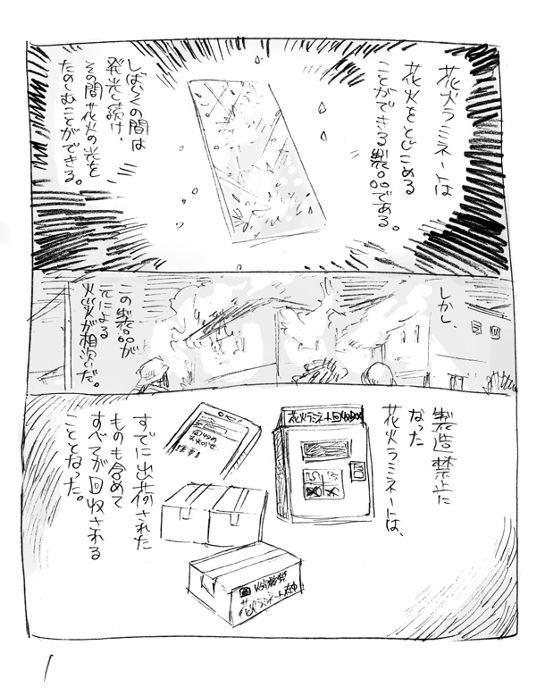 花火ラミネートは
花火をとじこめる
ことができる製品である。
しばらくの間は
発光し続け、
その間花火の光を
たのしむことができる。
しかし、
この製品が
元による
火災が相次いだ。
製造禁止に
なった
花火ラミネートは、
花火ラミネート回収BOX
すでに出荷された
ものも含めて
すべてが回収される
こととなった。
花火ラミネート在中
1